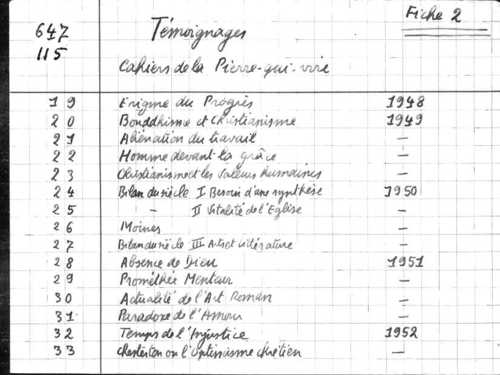 Fiche 2
647 Témoignages
115
Cahiers de la Pierre-qui-vire
19 Enigme du Progrès 1948
20 Bouddhisme et Christianisme 1949
21 Alienation du travail —
22 Homme devant la grâce —
23 Christianisme et les Valeurs humaines —
24 Bilan du siècle I Besoin d'une synthèse 1950
25 — II Vitalité de l'Eglise —
26 Moines —
27 Bilan du siècle III Arts et littérature —
28 Absence de Dieu 1951
29 Prométhée Menteur —
30 Actualité de l'Art Roman —
31 Paradoxe de l'Amour —
32 Temps de l'Injustice 1952
33 Chesterton ou l'Optimisme chrétien —